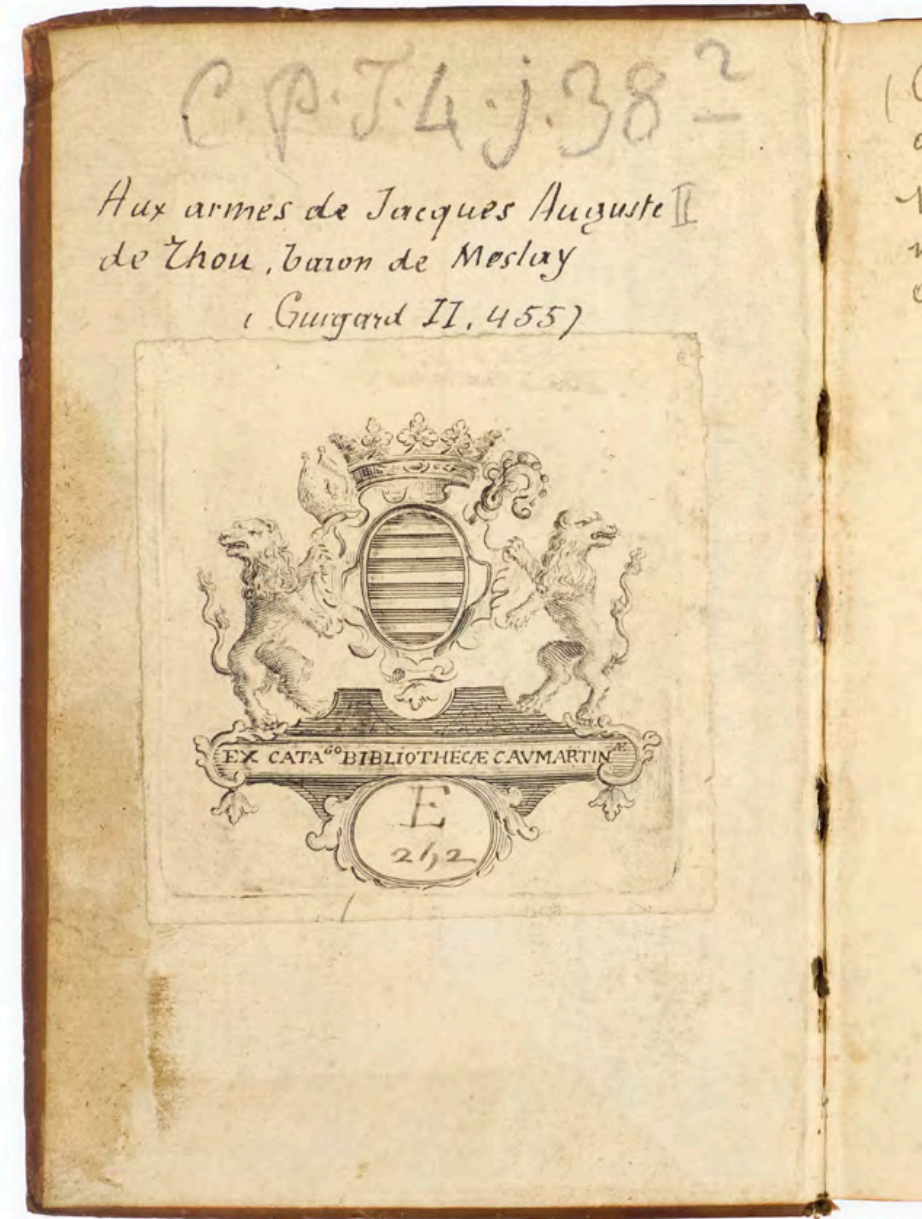 C.P.J.4.j.38²
Aux armes de Jacques Auguste II
de Thou, baron de Meslay
(Guigard II, 455)
EX CATAᴳᴼ BIBLIOTHECÆ CAVMARTINÆ
E
242